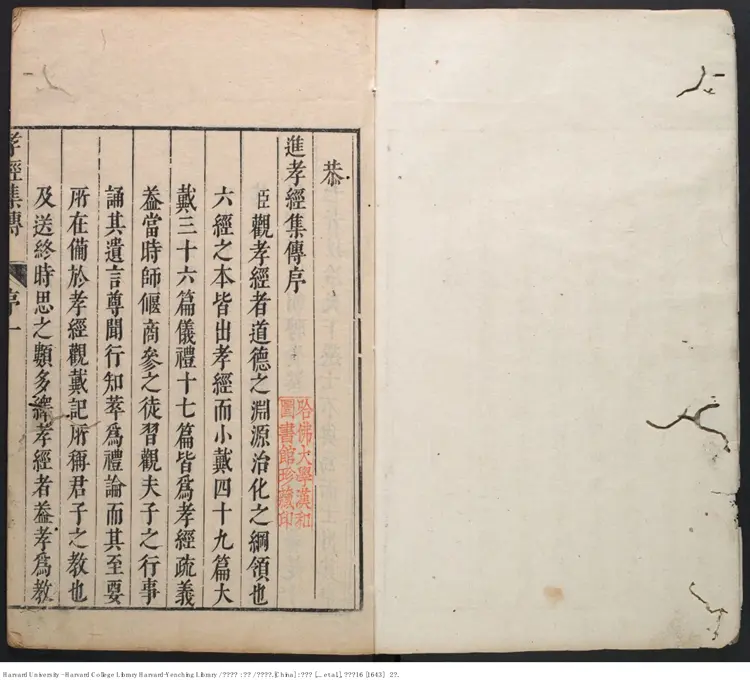 恭
進孝經集傳序
臣觀孝經者道德之淵源治化之綱領也
六經之本皆出孝經而小戴四十九篇大
戴三十六篇儀禮十七篇皆爲孝經疏義
葢當時師偃商參之徒習觀夫子之行事
誦其遺言尊聞行知萃爲禮論而其至要
所在備於孝經觀戴記所稱君子之教也
及送終時思之類多繹孝經者葢孝爲教
孝經集傳
序
一
哈佛大學漢和
圖書館珍藏印
Harvard University - Harvard College Library Harvard-Yenching Library / ???? : ?? / ????. [China] : ??? [... et al.], ???16 [1643] : 2?.